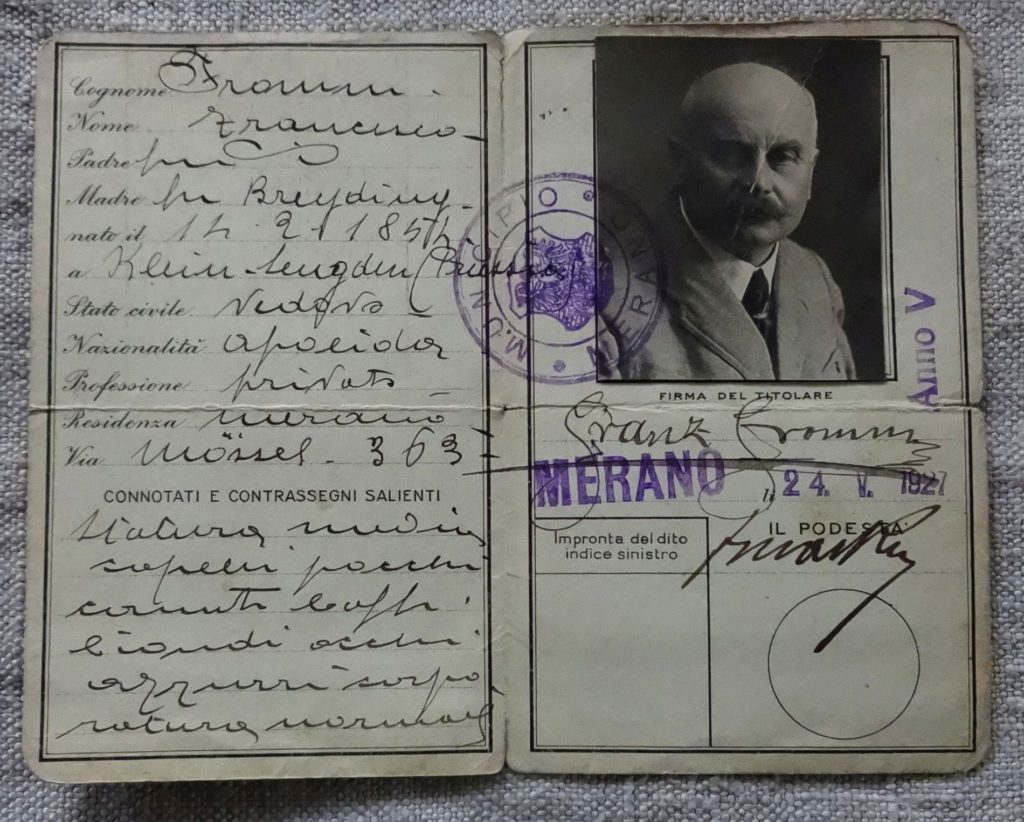 Cognome Fromm
Nome Francesco
Padre fu
Madre fu Breyding
nato il 14.2.1854
a Klein-Lengden (Prussia)
Stato civile vedovo
Nazionalità apolide
Professione privato
Residenza Merano
Via Mössel. 363
CONNOTATI E CONTRASSEGNI SALIENTI
Statura media
capelli pochi
canuti baffi
biondi occhi
azzurri corpo
ratura normale
MUNICIPIO MERANO
Anno V
FIRMA DEL TITOLARE
Franz Fromm
MERANO li 24. V. 1927
IL PODESTA'
Impronta del dito
indice sinistro